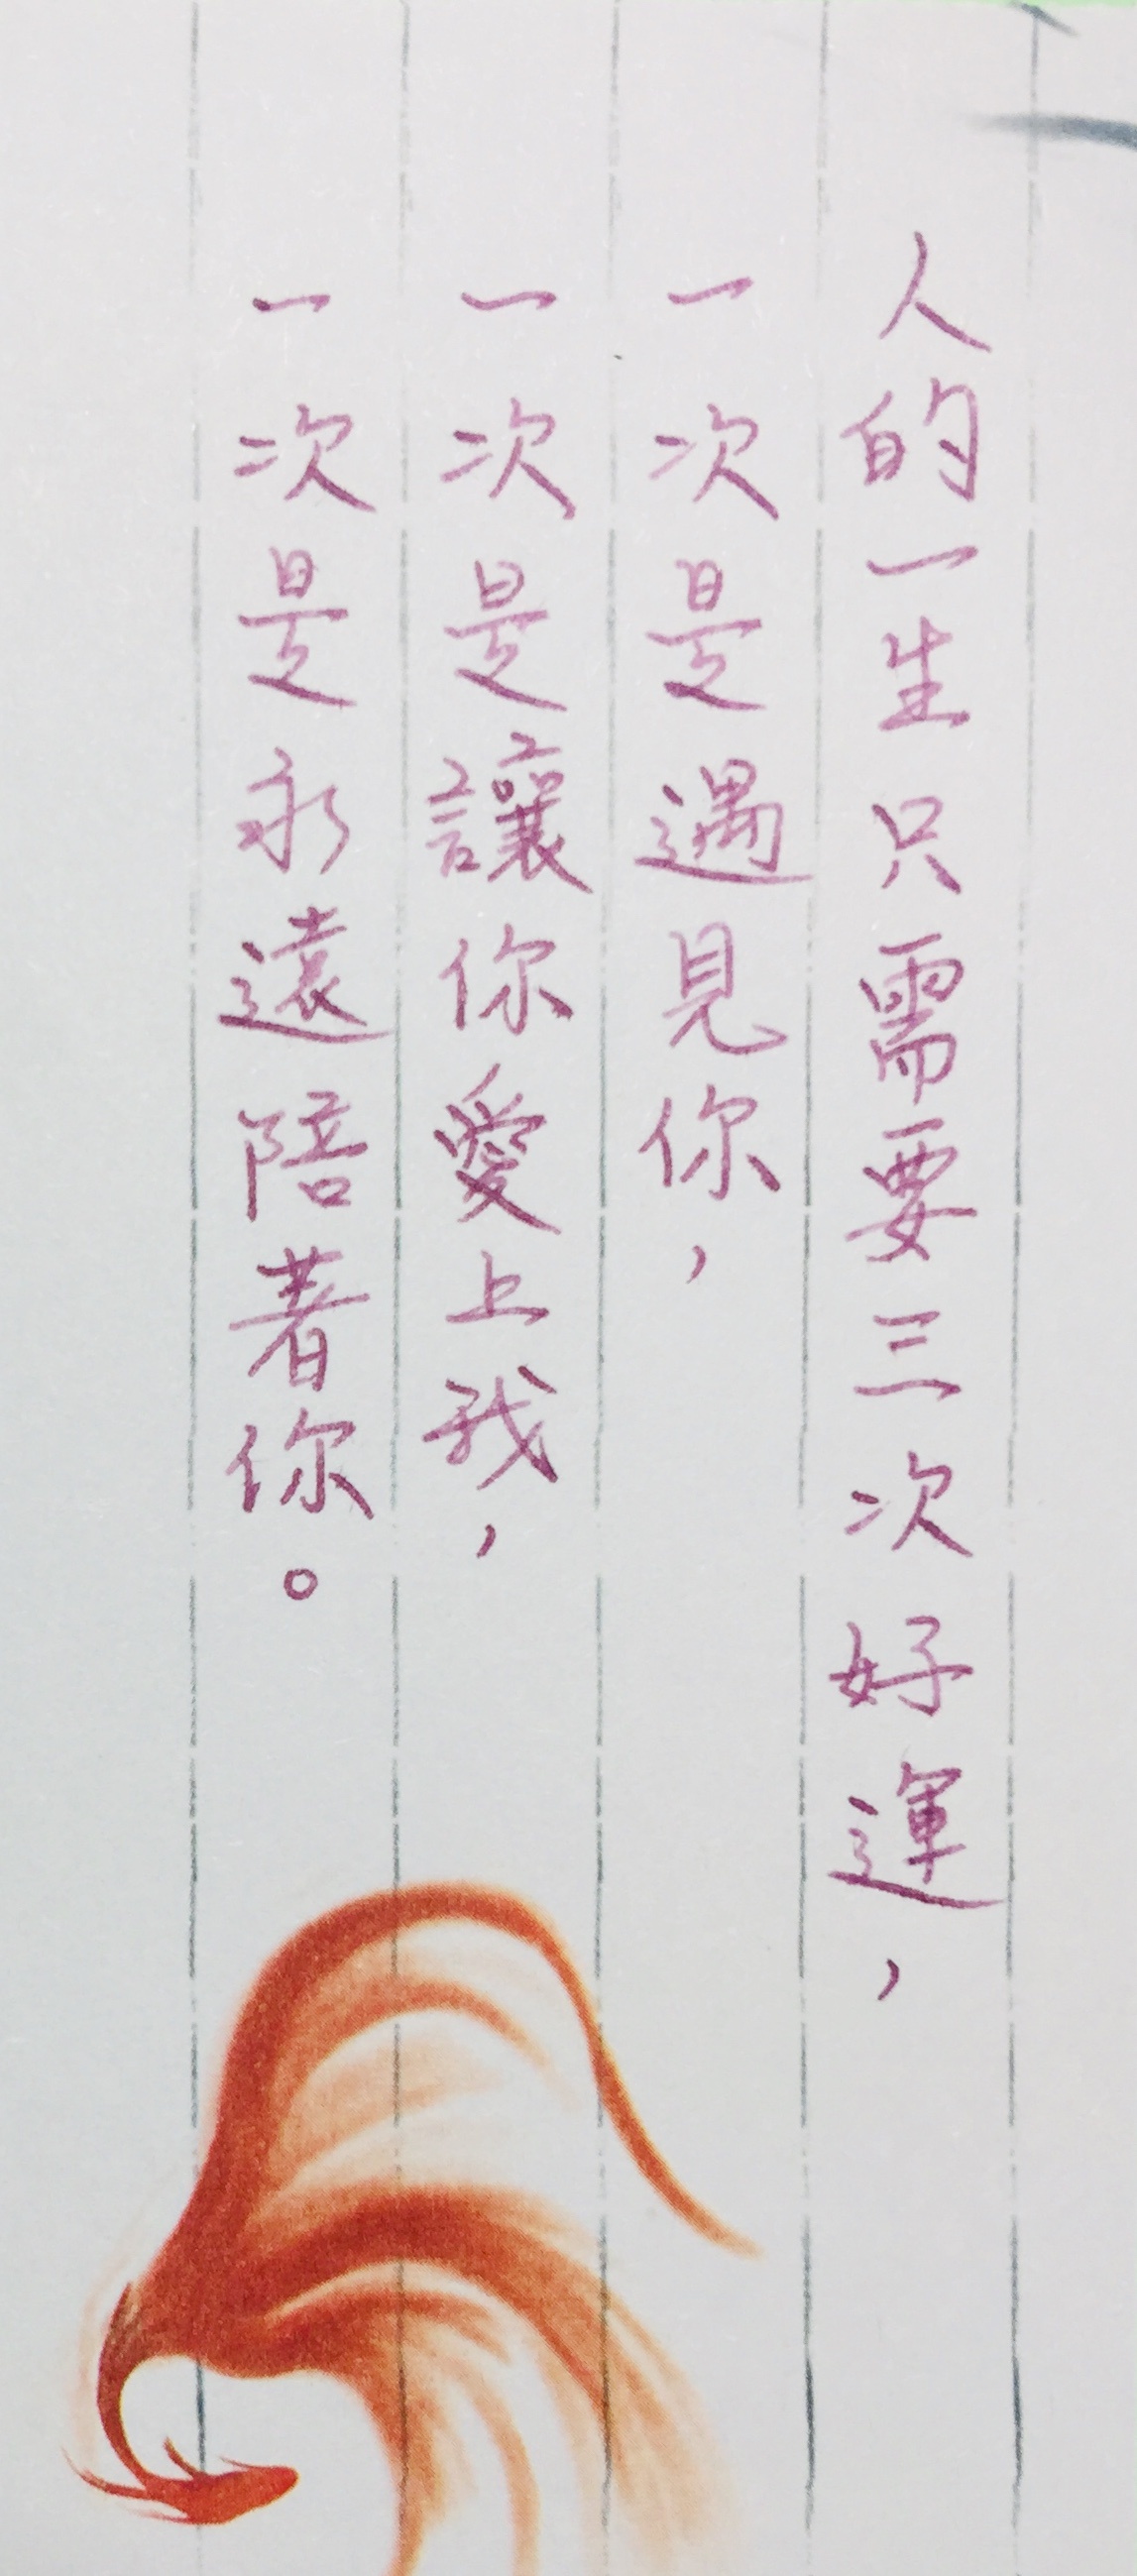 人的一生只需要三次好運，
一次是遇見你，
一次是讓你愛上我，
一次是永遠陪著你。